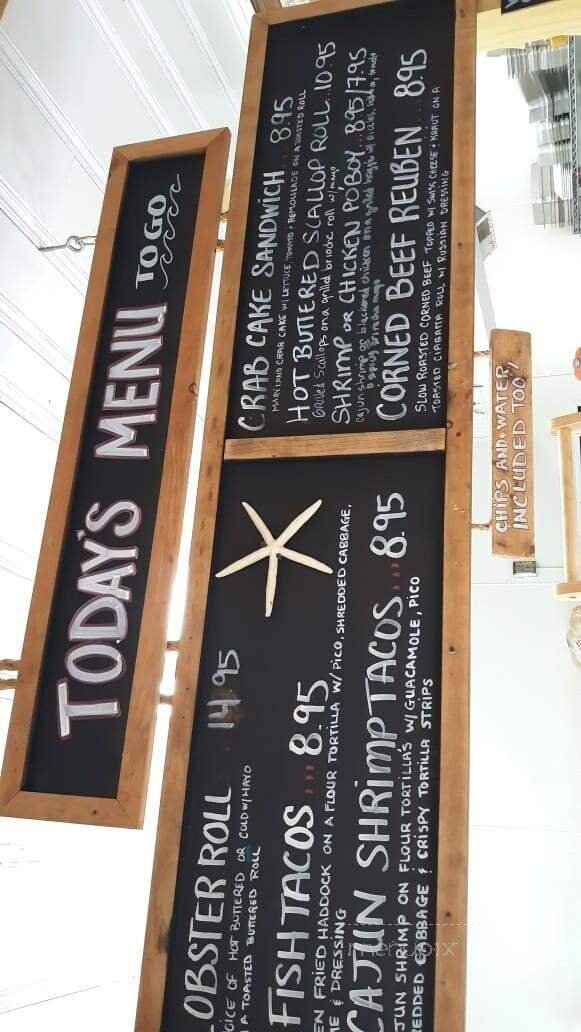 TODAY'S MENU TO GO
OBSTER ROLL ... 14.95
OICE OF HOT BUTTERED OR COLD W/ MAYO
A TOASTED BUTTERED ROLL
FISH TACOS ... 8.95
EN FRIED HADDOCK ON A FLOUR TORTILLA W/ PICO, SHREDDED CABBAGE,
ME & DRESSING
CAJUN SHRIMP TACOS ... 8.95
JUN SHRIMP ON FLOUR TORTILLA'S W/ GUACAMOLE, PICO
REDDED CABBAGE & CRISPY TORTILLA STRIPS
CRAB CAKE SANDWICH ... 8.95
MARYLAND CRAB CAKE W/ LETTUCE TOMATO & REMOULADE ON A TOASTED ROLL
HOT BUTTERED SCALLOP ROLL .. 10.95
Grilled Scallops on a grilled brioche roll w/ mayo
SHRIMP OR CHICKEN PO BOY ... 8.95/7.95
Cajun shrimp or blackened chicken on a grilled w/ pickles, tomato
& spicy sriracha mayo
CORNED BEEF REUBEN 8.95
SLOW ROASTED CORNED BEEF TOPPED W/ SWISS CHEESE & KRAUT ON A
TOASTED CIABATTA ROLL W/ RUSSIAN DRESSING
CHIPS AND WATER
INCLUDED TOO!
menupix